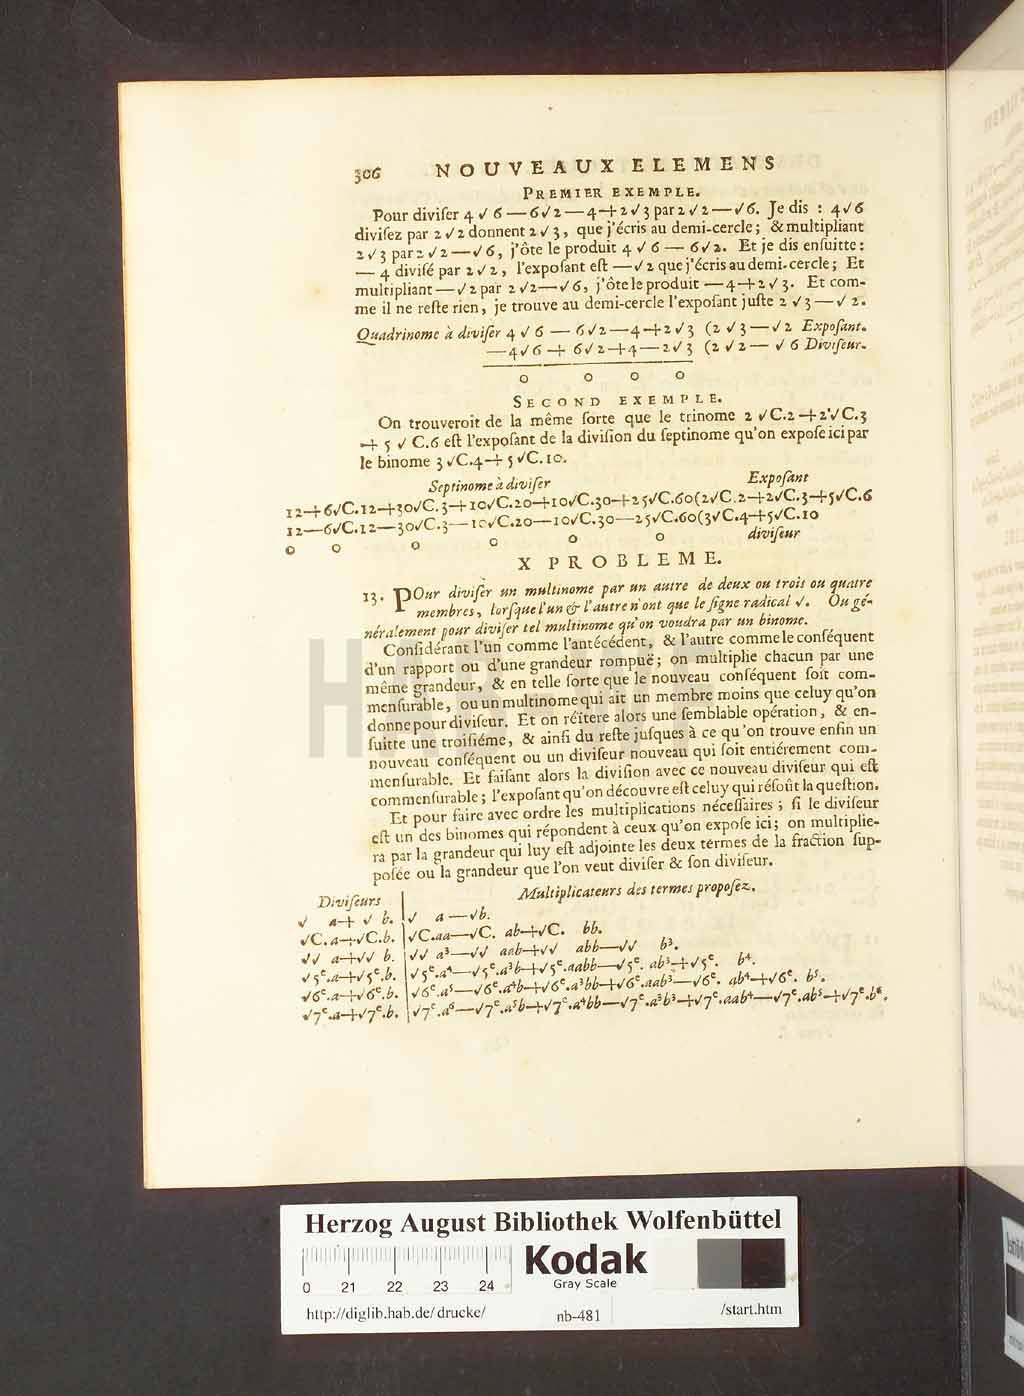 306 NOUVEAUX ELEMENS
PREMIER EXEMPLE.
Pour diviſer 4 √ 6 — 6√2 — 4 + 2 √ 3 par 2 √ 2 — √6. Je dis : 4 √6
diviſez par 2 √ 2 donnent 2 √ 3, que j'écris au demi-cercle; & multipliant
2 √ 3 par 2 √ 2 — √ 6, j'ôte le produit 4 √ 6 — 6√2. Et je dis enſuitte :
— 4 diviſé par 2 √ 2, l'expoſant eſt — √ 2 que j'écris au demi-cercle; Et
multipliant — √ 2 par 2 √2 — √6, j'ôte le produit — 4 + 2 √ 3. Et com-
me il ne reſte rien, je trouve au demi-cercle l'expoſant juſte 2 √ 3 — √ 2.
Quadrinome à diviſer 4 √ 6 — 6√2 — 4 + 2 √ 3 (2 √ 3 — √ 2 Expoſant.
— 4√6 + 6√2 + 4 — 2√3 (2 √ 2 — √ 6 Diviſeur.
o o o o
SECOND EXEMPLE.
On trouveroit de la même ſorte que le trinome 2 √C.2 + 2 √C.3
+ 5 √ C.6 eſt l'expoſant de la diviſion du ſeptinome qu'on expoſe ici par
le binome 3 √C.4 + 5 √C.10.
Septinome à diviſer Expoſant
12+6√C.12+30√C.3+10√C.20+10√C.30+25√C.60(2√C.2+2√C.3+5√C.6
12—6√C.12—30√C.3—10√C.20—10√C.30—25√C.60(3√C.4+5√C.10
o o o o o o diviſeur
X PROBLEME.
13. POur diviſer un multinome par un autre de deux ou trois ou quatre
membres, lorſque l'un & l'autre n'ont que le ſigne radical √. Ou gé-
néralement pour diviſer tel multinome qu'on voudra par un binome.
Conſidérant l'un comme l'antécédent, & l'autre comme le conſéquent
d'un rapport ou d'une grandeur rompuë; on multiplie chacun par une
même grandeur, & en telle ſorte que le nouveau conſéquent ſoit com-
menſurable, ou un multinome qui ait un membre moins que celuy qu'on
donne pour diviſeur. Et on réïtere alors une ſemblable opération, & en-
ſuitte une troiſiéme, & ainſi du reſte juſques à ce qu'on trouve enfin un
nouveau conſéquent ou un diviſeur nouveau qui ſoit entiérement com-
menſurable. Et faiſant alors la diviſion avec ce nouveau diviſeur qui eſt
commenſurable; l'expoſant qu'on découvre eſt celuy qui réſoût la queſtion.
Et pour faire avec ordre les multiplications néceſſaires; ſi le diviſeur
eſt un des binomes qui répondent à ceux qu'on expoſe ici; on multiplie-
ra par la grandeur qui luy eſt adjointe les deux termes de la fraction ſup-
poſée ou la grandeur que l'on veut diviſer & ſon diviſeur.
Diviſeurs Multiplicateurs des termes propoſez.
√ a+ √ b. √ a — √b.
√C.a+√C.b. √C.aa—√C. ab+√C. bb.
√√ a+√√ b. √√ a³—√√ aab+√√ abb—√√ b³.
√5ᵉ.a+√5ᵉ.b. √5ᵉ.a⁴—√5ᵉ.a³b+√5ᵉ.aabb—√5ᵉ.ab³+√5ᵉ. b⁴.
√6ᵉ.a+√6ᵉ.b. √6ᵉ.a⁵—√6ᵉ.a⁴b+√6ᵉ.a³bb+√6ᵉ.aab³—√6ᵉ. ab⁴+√6ᵉ. b⁵.
√7ᵉ.a+√7ᵉ.b. √7ᵉ.a⁶—√7ᵉ.a⁵b+√7ᵉ.a⁴bb—√7ᵉ.a³b³+√7ᵉ.aab⁴—√7ᵉ.ab⁵+√7ᵉ.b⁶.
HAB - WF
Herzog August Bibliothek Wolfenbüttel
Kodak
Gray Scale
0 21 22 23 24
http://diglib.hab.de/drucke/ nb-481 /start.htm